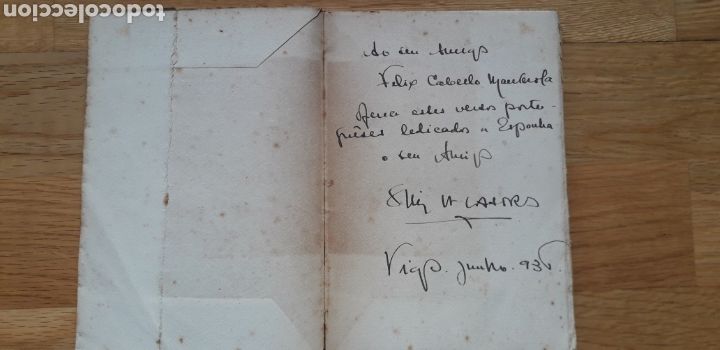 todocoleccion
Ao seu Amigo
Felix Cabello Manterola
estes versos portu-
guêses dedicados a Espanha
o seu Amigo
Vigo. Junho. 936